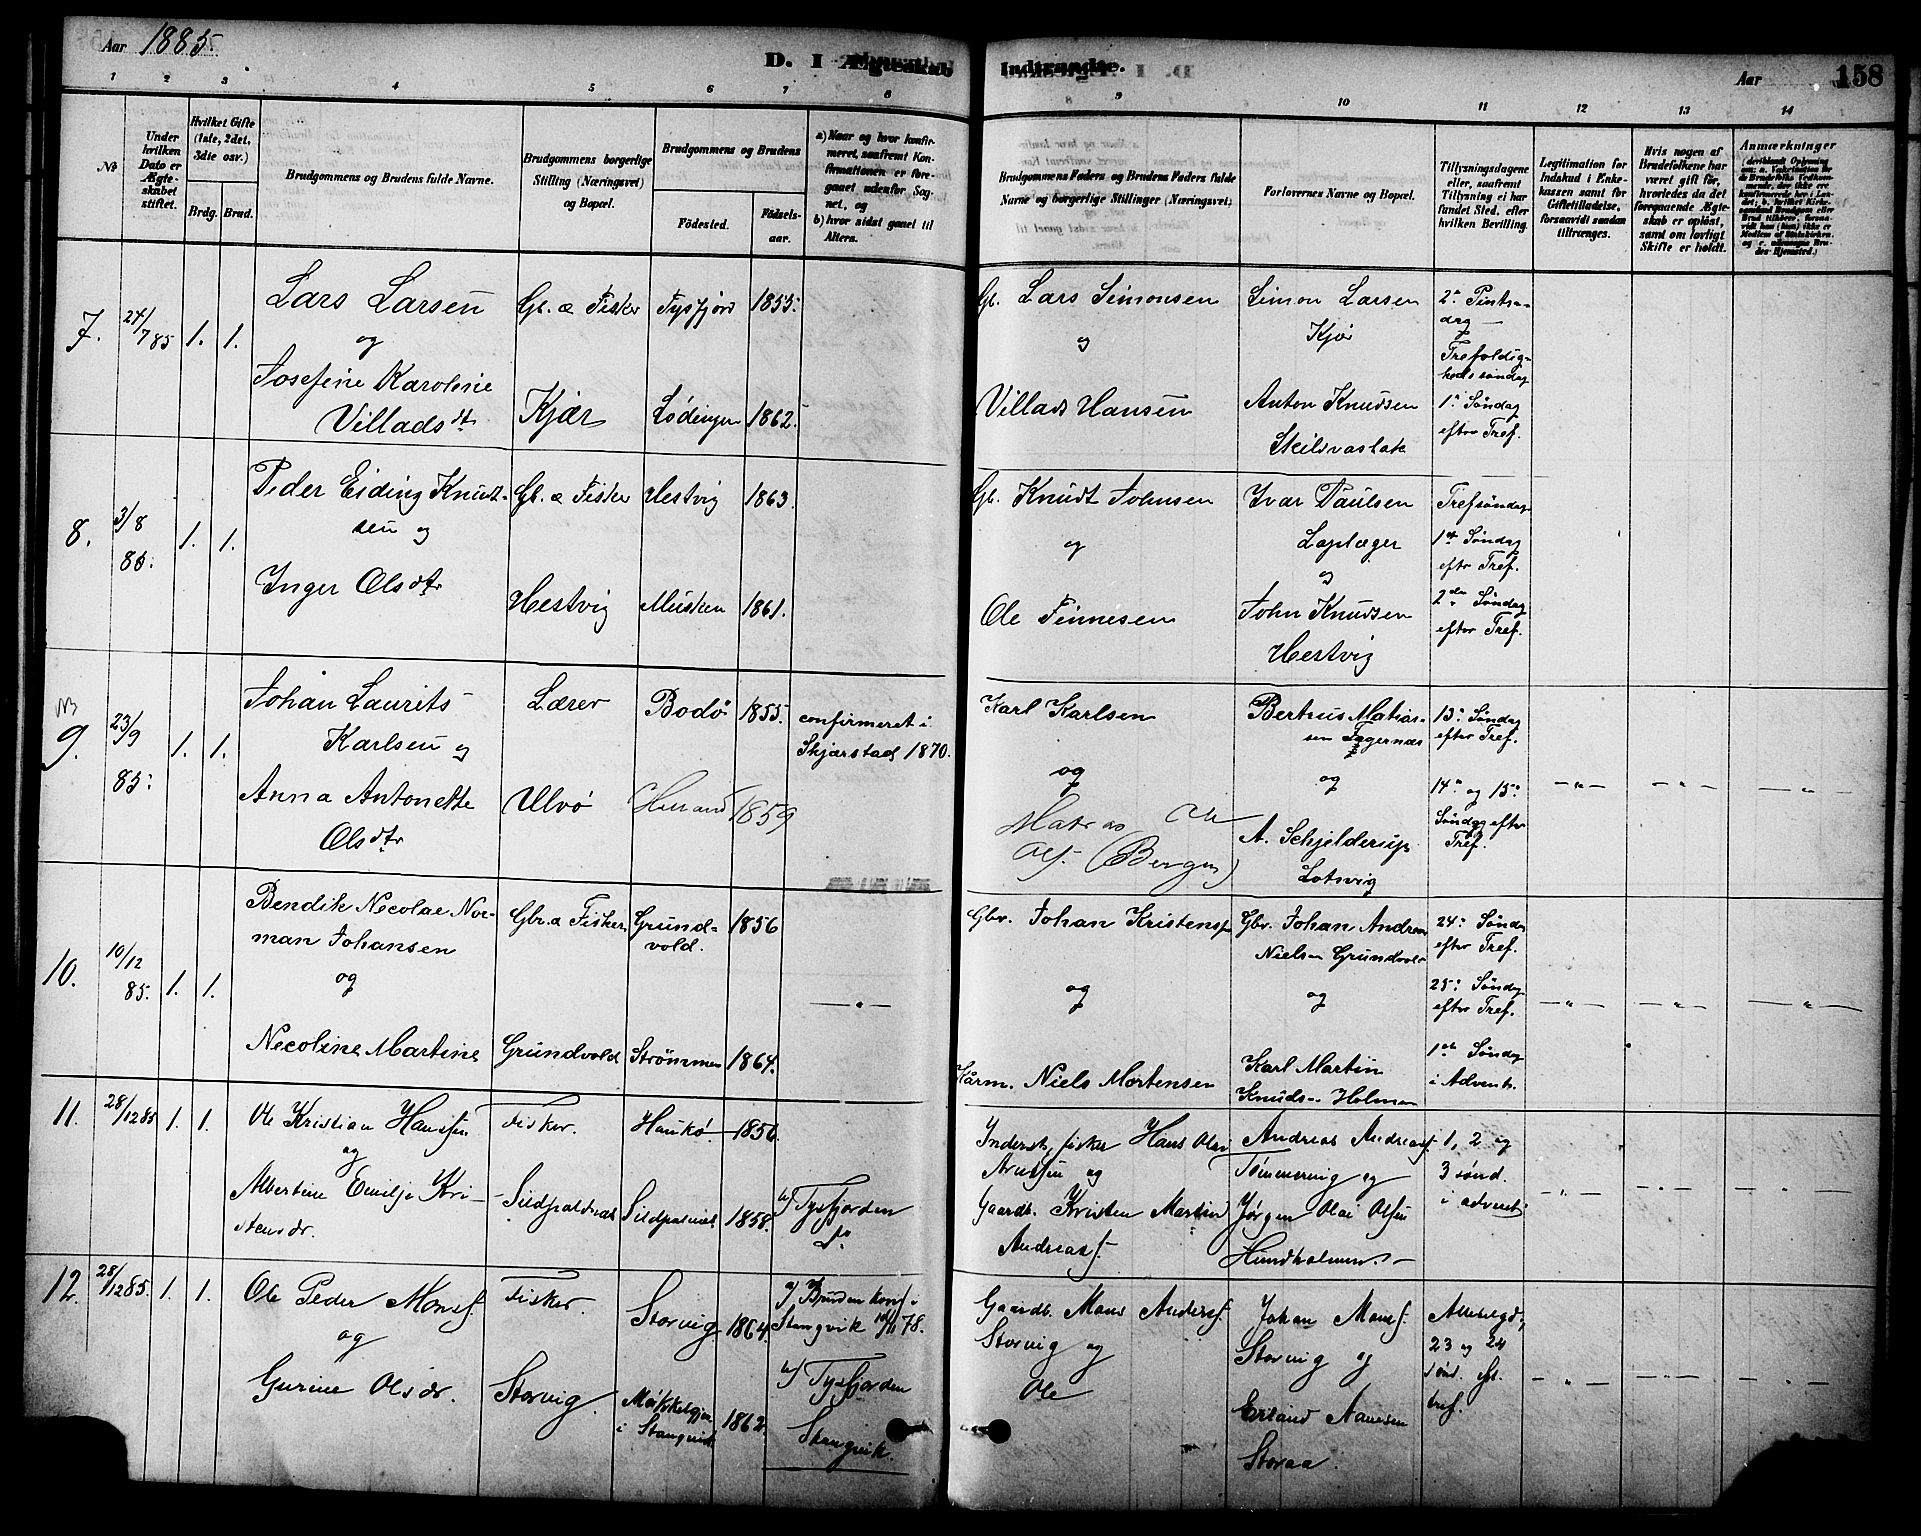 Aar 1885.
D. I Ægteskab Indtraadte.
Aar 158
1 2 3 4 5 6 7 8 9 10 11 12 13 14
№
Under hvilken Dato er Ægteskabet stiftet.
Hvilket Gifte (1ste, 2det, 3die osv.)
Brdg. Brud.
Brudgommens og Brudens fulde Navne.
Brudgommens borgerlige Stilling (Næringsvei) og Bopæl.
Brudgommens og Brudens
Födested.
Födselsaar.
a) Naar og hvor konfirmeret, saafremt Konfirmationen er foregaaet udenfor Sognet, og
b) hvor sidst gaaet til Alters.
Brudgommens Faders og Brudens Faders fulde Navne og borgerlige Stillinger (Næringsvei)
Forlovernes Navne og Bopæl.
Tillysningsdagene eller, saafremt Tillysning ei har fundet Sted, efter hvilken Bevilling.
Legitimation for Indskud i Enkekassen samt for Giftetilladelse, forsaavidt saadan tiltrænges.
Hvis nogen af Brudefolkene har været gift før, hvorledes da det foregaaende Ægteskab er oplöst, samt om lovligt Skifte er holdt.
Anmærkninger
7. 24/7 85 1. 1.
Lars Larsen
og
Josefine Karoline
Villadsdt
Gb. & Fisker
Kjær
Tysfjord 1855.
Lødingen 1862.
Gb. Lars Simonsen
og
Villads Hansen
Simon Larsen
Kjör
Anton Knudsen
2n Pintsedag
Trefoldighedssøndag
1n Søndag
efter Tref.
8. 3/8 85. 1. 1.
Peder Eiding Knudtsen
og
Inger Olsdtr
Gb. & Fisker
Hestvig
Hestvig 1863.
Musken 1861.
Gb. Knudt Johnsen
og
Ole Finnesen
Ivar Paulsen
Laplæger
og
John Knudsen
Hestvig
Trefsöndag
1ste Søndag
eftr Tref.
2den Søndag
efter Tref.
9. 23/9 85. 1. 1.
Johan Laurits
Karlsen og
Anna Antonette
Olsdtr
Lærer
Ulvö
Bodö 1855.
1859
confirmeret i
Skjærstad 1870.
Karl Karlsen
og
(Bergen)
Bertius Matiassen
Fagernæs
og
A. Schjelderup
Lotsvig
13n Søndag
efter Tref.
14n og 15n
Søndag efter
Tref.
10. 10/12 85. 1. 1.
Bendik Necolae Norman
Johansen
og
Necoline Martine
Gbr. & Fisker
Grundvold
Grundvold. 1856
Strømmen 1864.
Gbr. Johan Kristens
og
Niels Mortensen
Gbr. Johan Andreas
Nielsen Grundvold
og
Karl Martin
Knudsen Holmen
24n Sønda
efter Tref.
25n Søndag
efter Tref.
1ste Søndag
i Advent.
11. 28/12 85 1. 1.
Ole Kristian Hansen
og
Albertine Emilje Kristensdr.
Fisker.
Sildpaldnæs
Haukö 1856.
Sildpaldnæs 1858.
b) Tysfjorden
Inderst, fisker Hans Olai
og
Gaardb. Kristen Martin
Andreasf.
Andreas Andreasf.
Tömmervig og
Jörgen Olai Olsen
Hundholmen.
1, 2 og
3 sönd.
i advent
12. 28/12 85. 1. 1.
Ole Peder Monsf.
og
Gurine Olsdr.
Fisker.
Storvig.
Storvig 1864.
i Stangvik 1862.
a) Bruden konf i
Stangvik 78.
b) Tysfjorden
Stangvik.
Gaardb. Mons Andersf.
Storvig og
Ole
Johan Monsf.
Storvig og
Erland
Storaa.
Allehelgd,
23 og 24
sönd. eft.
tref.